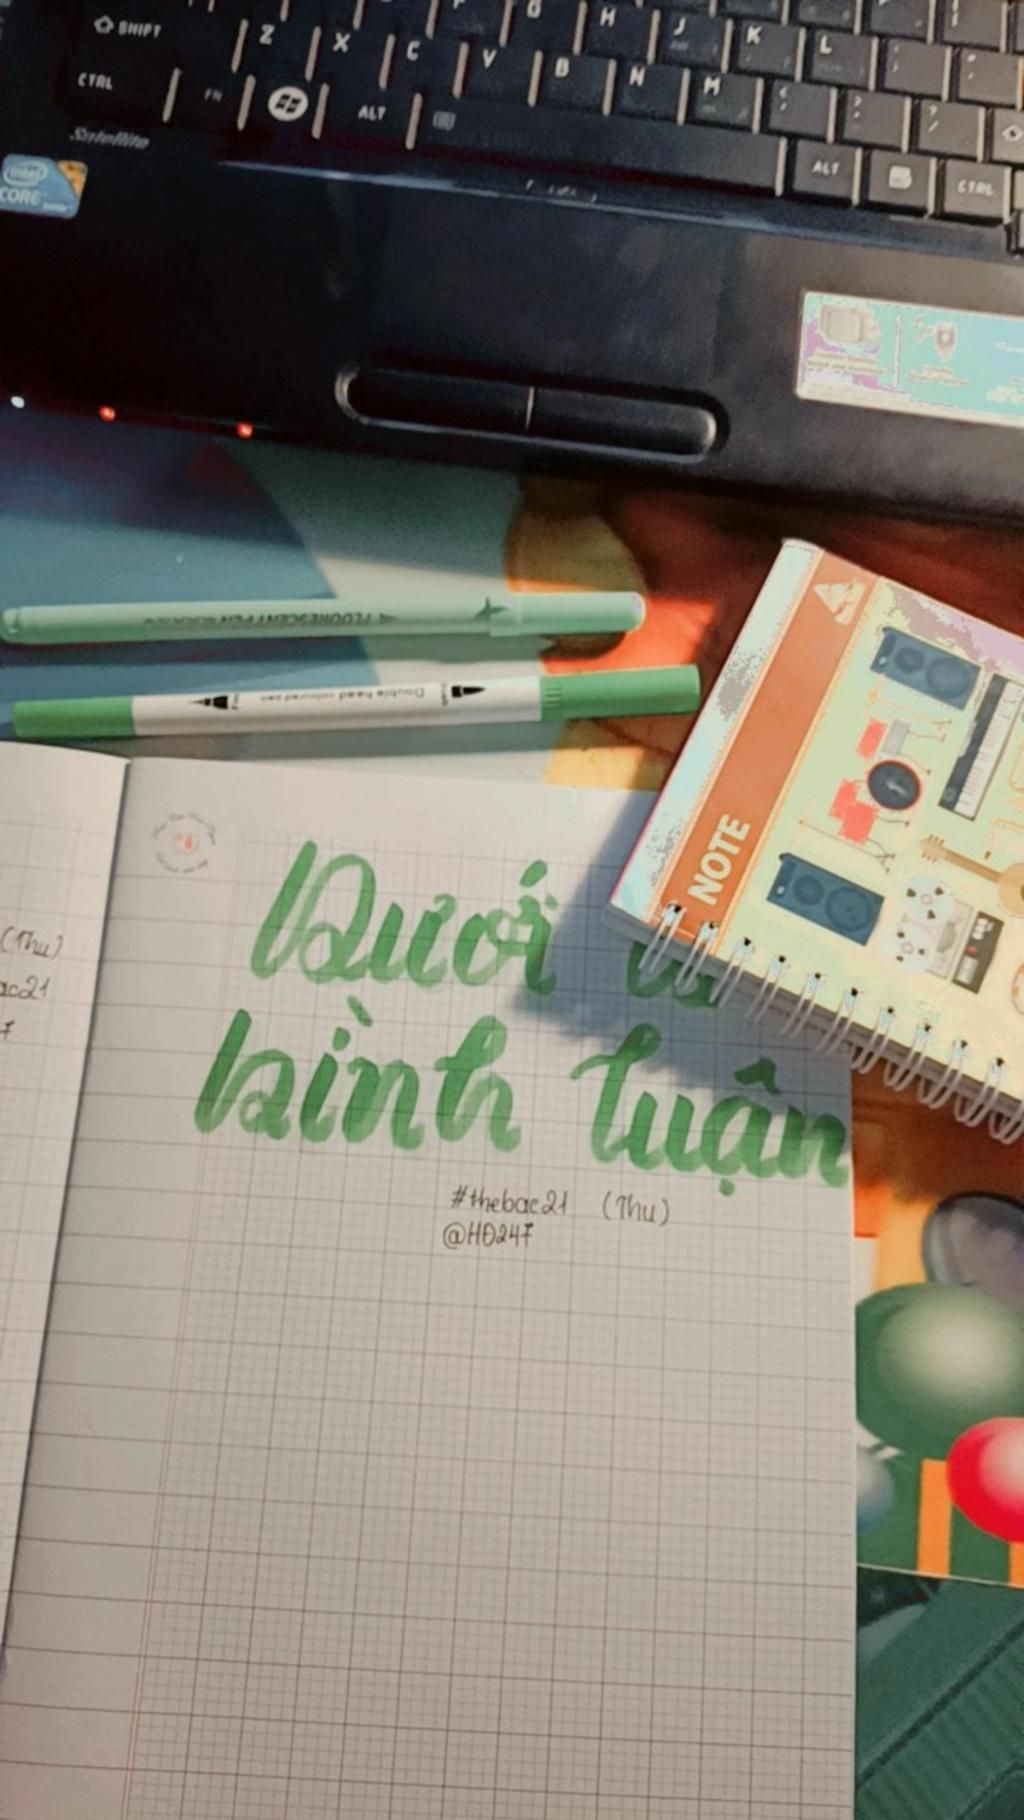 SHIFT Z X C V B N M
CTRL FN ALT
ALT CTRL
H J K L
Satellite
intel
CORE
FLUORESCENT PEN
Double head coloured pen
NOTE
Dưới
bình luận
#thebac21 (Thu)
@HĐ247
(Thu)
ac21
7